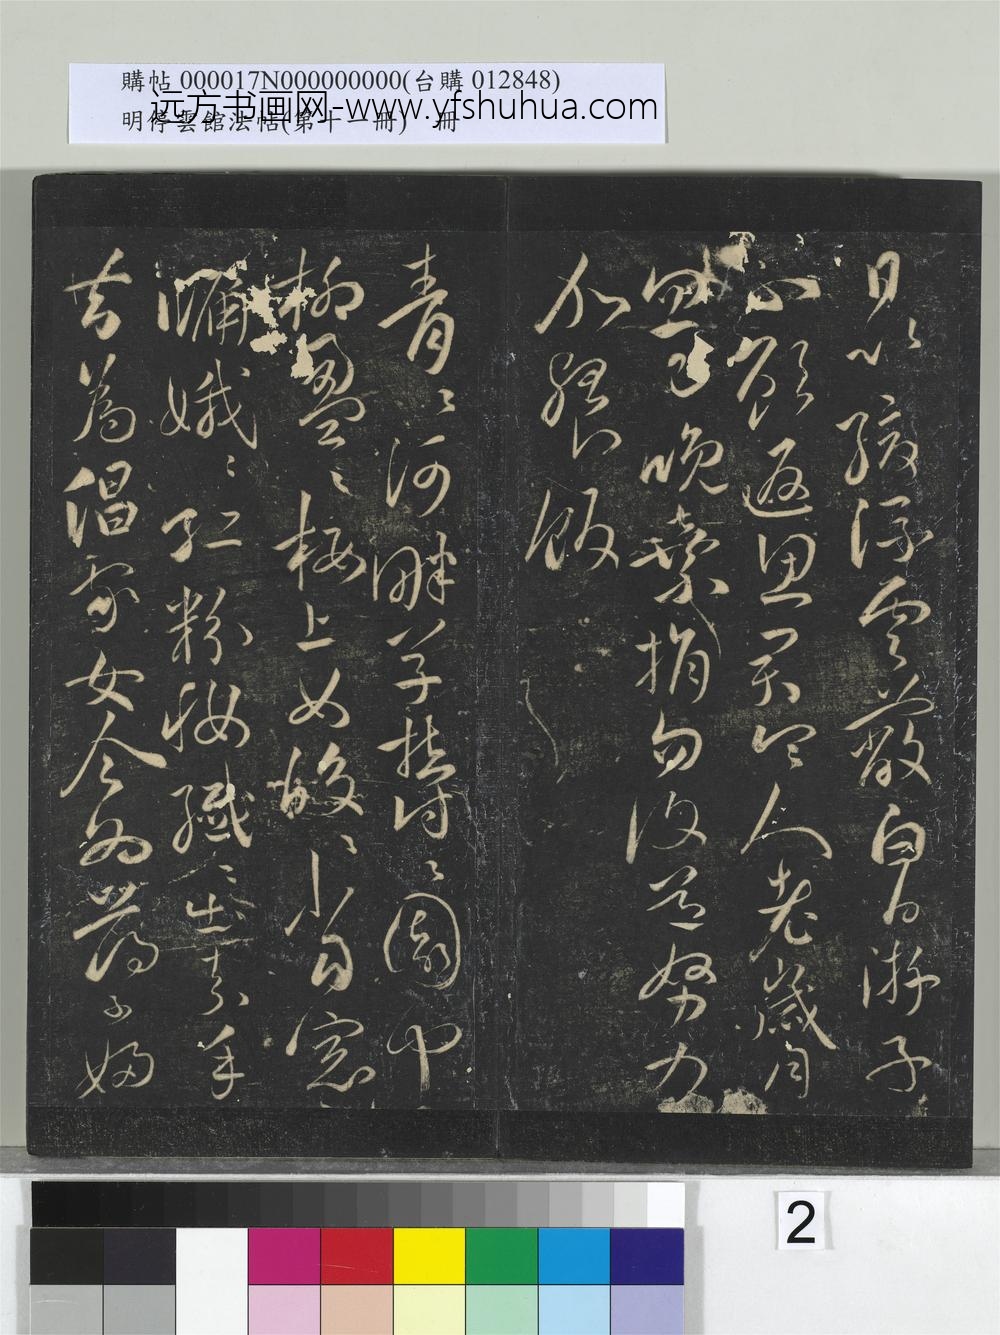 購帖 000017N000000000(台購 012848)
明停雲館法帖(第十一冊) 冊
远方书画网-www.yfshuhua.com
已緩浮雲蔽白日遊子
不顧返思君令人老歲月
忽已晚棄捐勿復道努力
加餐飯
青〻河畔草鬱〻園中
柳盈〻樓上女皎〻當窗
牖娥〻紅粉妝纖〻出素手
昔為倡家女今為蕩子婦
2